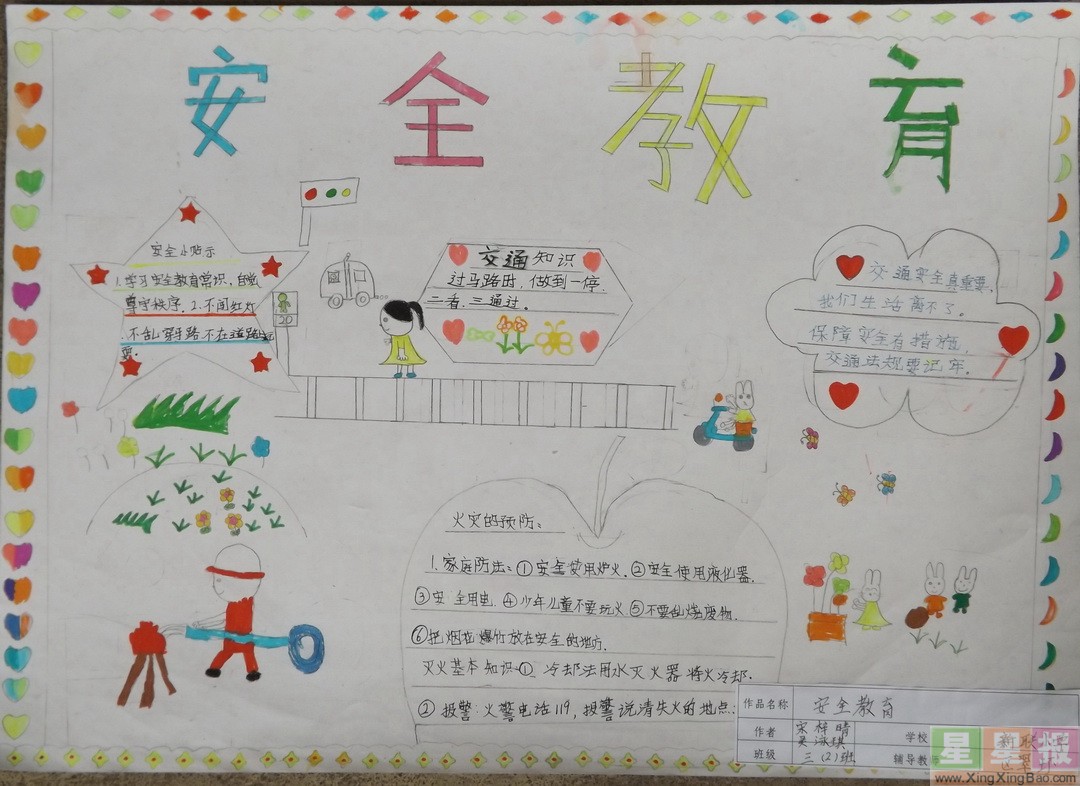 安全教育
安全小贴示
1.学习安全教育常识,自觉
尊守秩序.2.不闯红灯
.不乱穿马路不在道路玩
耍.
20
交通知识
过马路时,做到一停.
二看.三通过。
交通安全真重要,
我们生活离不了。
保障安全有措施,
交通法规要记牢。
火灾的预防:
1.家庭防法:①安全使用炉火.②安全使用液化器.
③安全用电.④少年儿童不要玩火⑤不要乱烧废物.
⑥把烟花爆竹放在安全的地方.
灭火基本知识①.冷却法用水灭火器将火冷却.
②报警:火警电话119,报警说清失火的地点:
作品名称 安全教育
作者 宋梓晴
吴泳琪
学校
班级 三(2)班
辅导教师
星星报
www.XingXingBao.com